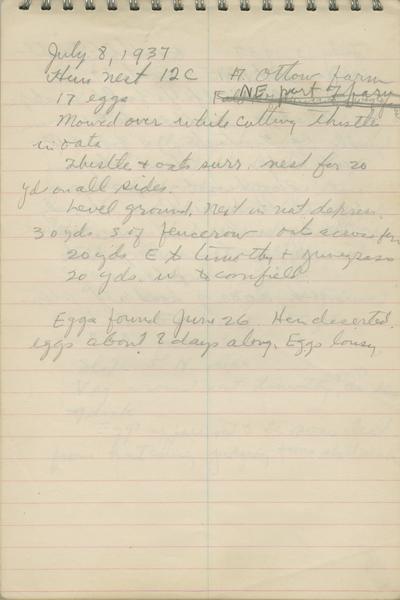 July 8, 1937
Hun nest 12C H. Ottow farm
17 eggs NE part of farm
Mowed over while cutting thistle
in oats
Thistle + oats surr. nest for 20
yds on all sides.
Level ground. Nest in nat depress.
30 yds S of fencerow oats across fen
20 yds E to timothy + Junegrass
20 yds. W to cornfield
Eggs found June 26 Hen deserted.
eggs about 8 days along. Eggs lousy